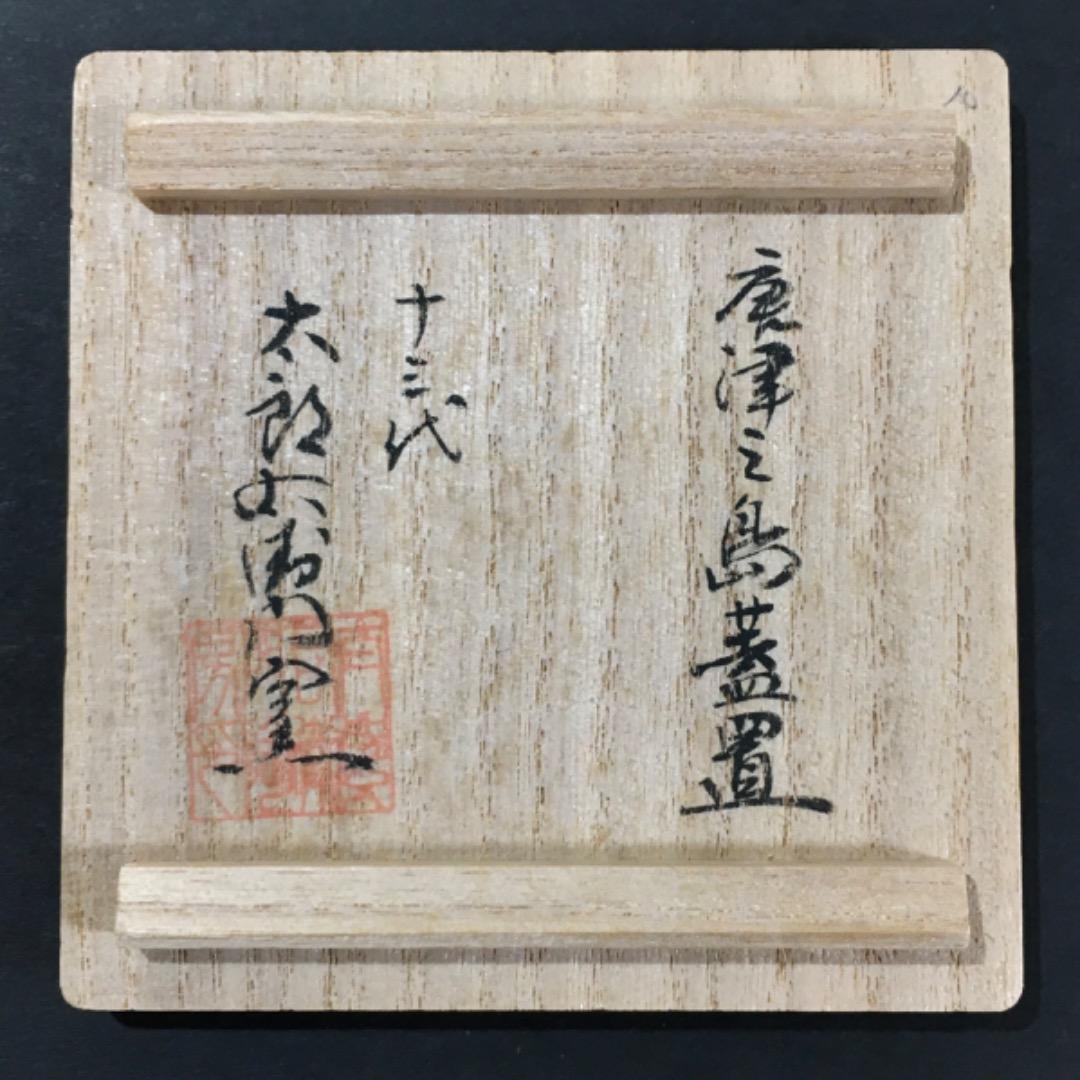 唐津三島蓋置
十三代
太郎右衛門窯